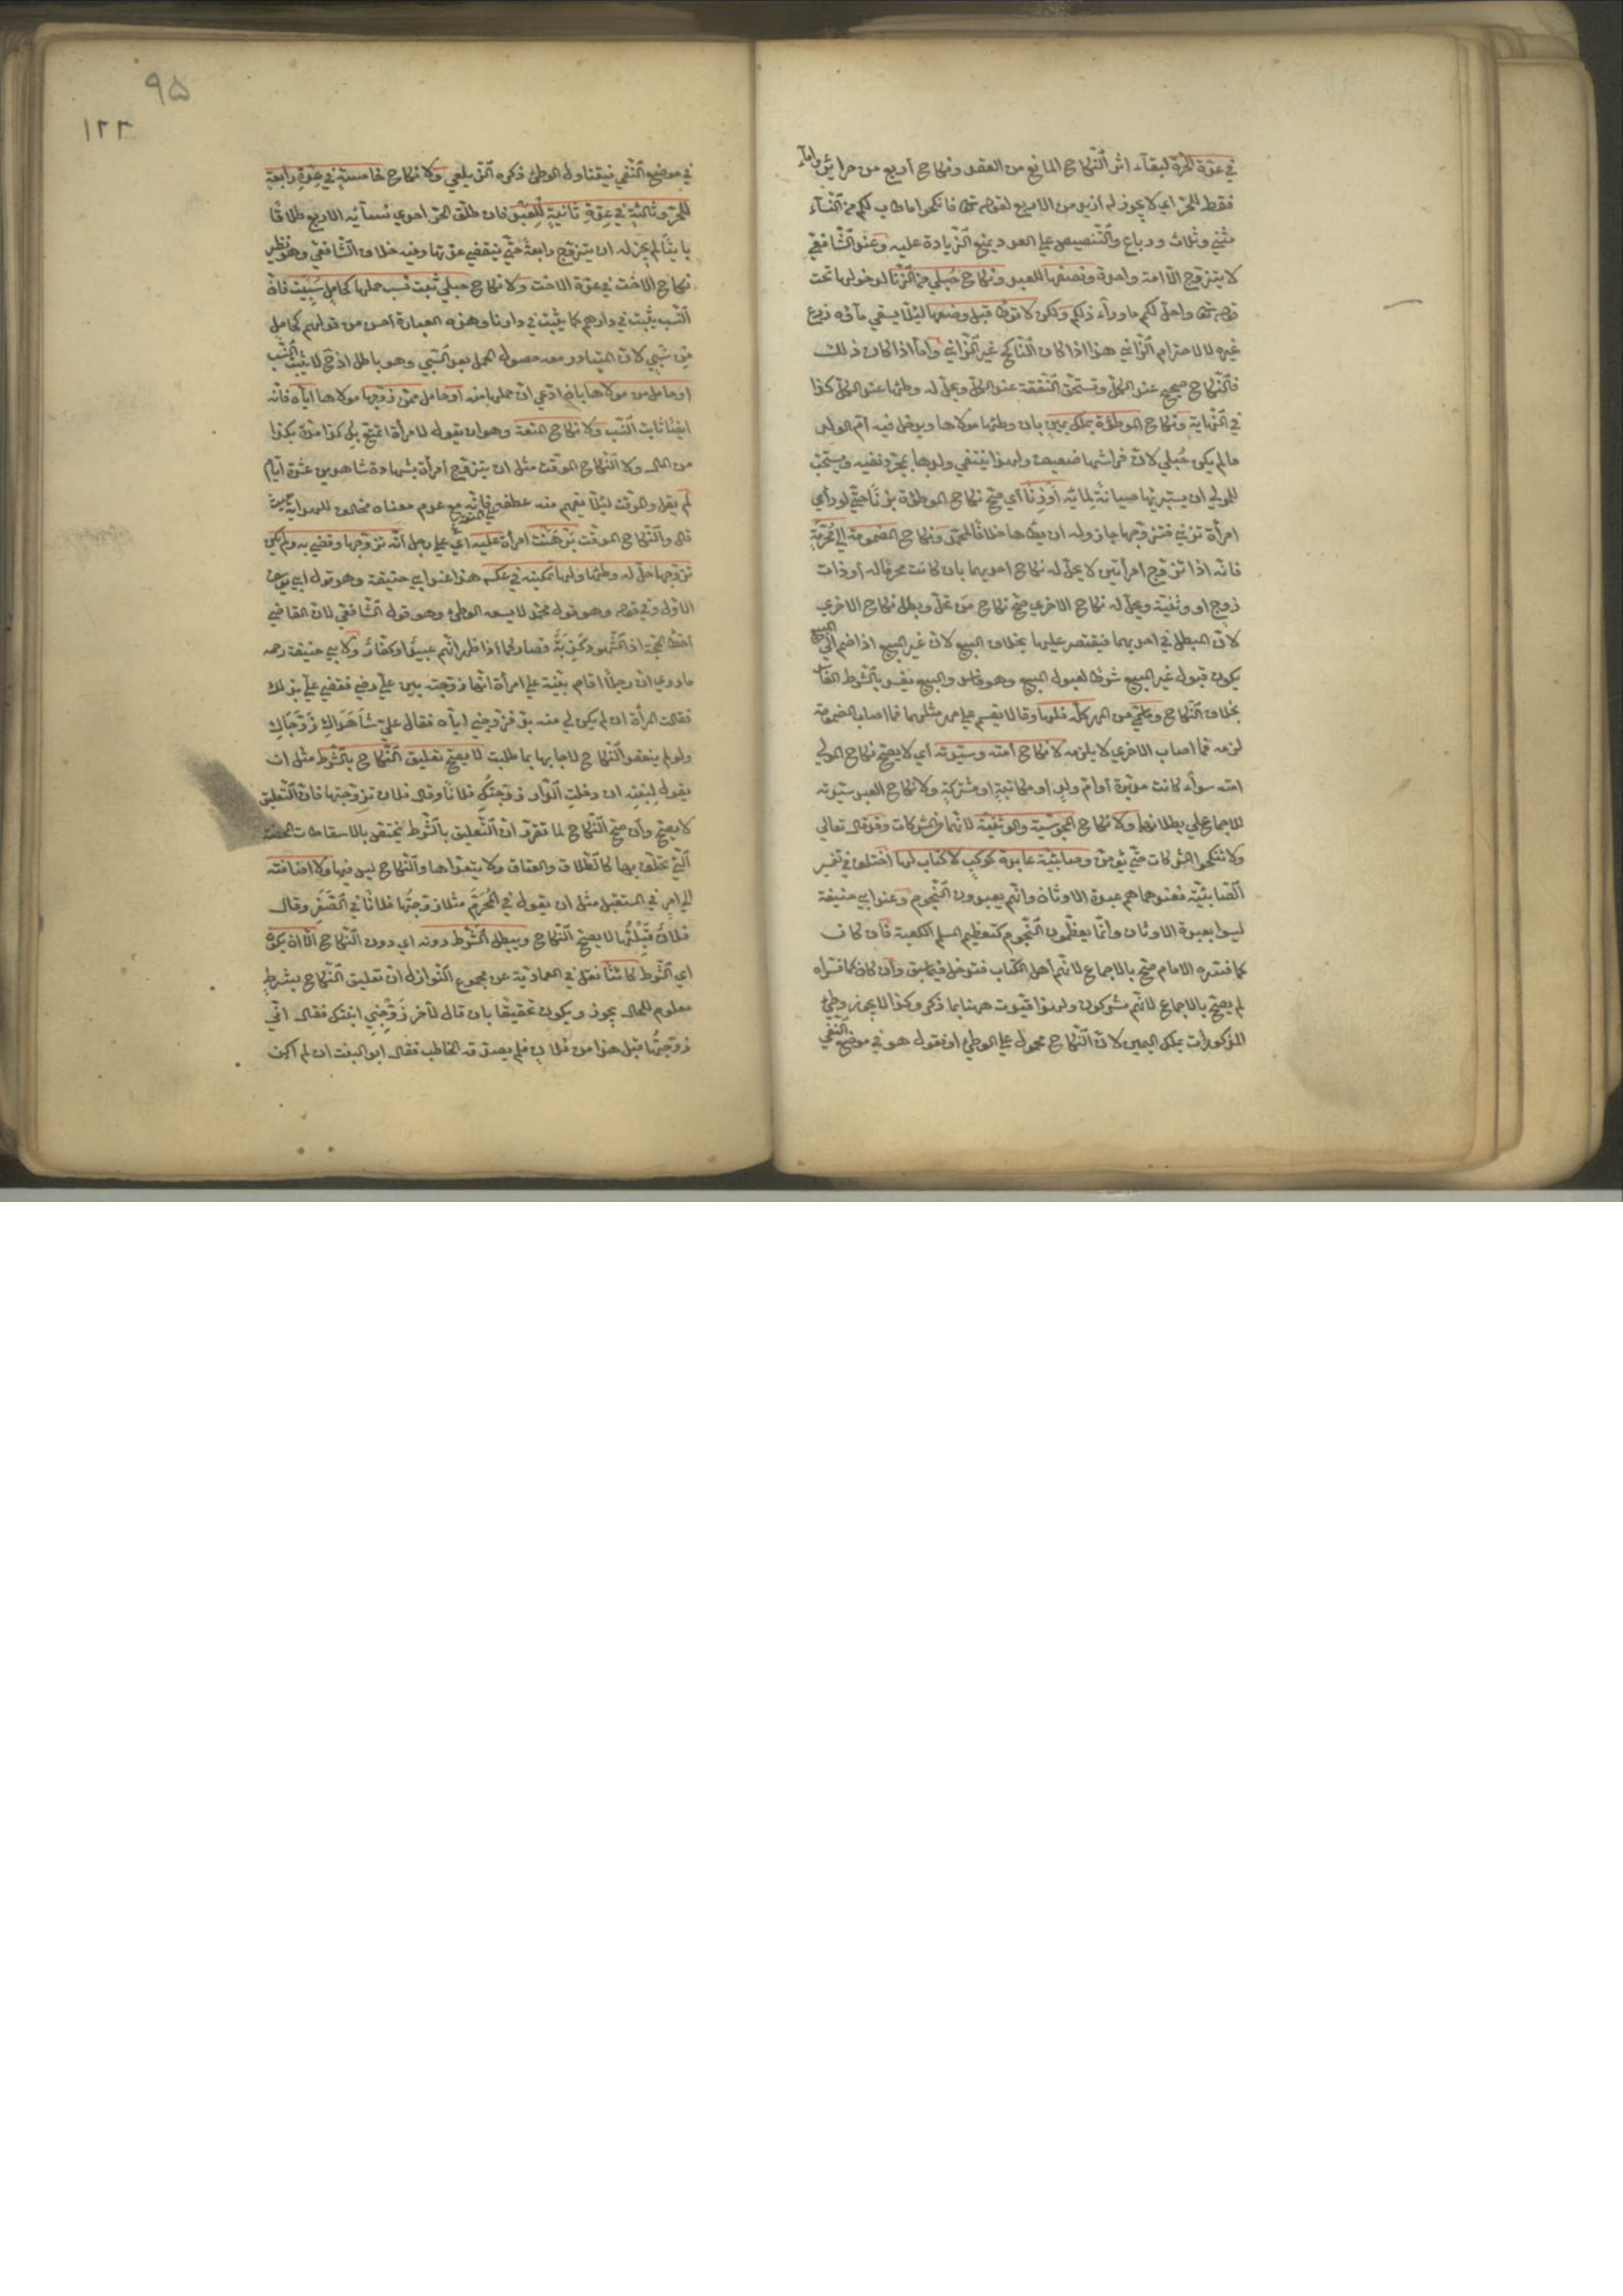 في عدّة الحرّة لبقاء اثر النّكاح المانع من العقد ونكاح أربع من حرائر وامآء
فقط للحرّ اي لا يجوز له أزيد من الاربع لقوله تعالى فانكحوا ما طاب لكم من النسآء
مثنى وثلاث ورباع والتّنصيص على العدد يمنع الزّيادة عليه وعند الشّافعيّ
لا يتزوّج الّا امة واحدة ونصفها للعبد ونكاح حُبلى من الزّنا لدخولها تحت
قوله تعالى واحلّ لكم ما ورآء ذلكم ولكن لا توطأ قبل وضعها لئلّا يسقي مآؤه زرع
غيره لا لاحترام الزّاني هذا اذا كان النّاكح غير الزّاني وأمّا اذا كان ذلك
فالنّكاح صحيح عند الكلّ وتستحقّ النّفقة عند الكلّ ويحلّ له وطئها عند الكلّ كذا
في النّهاية ونكاح الموطؤة بملك يمين بان وطئها مولاها ويدخل فيه أمّ الولد
ما لم يكن حُبلى لانّ فراشها ضعيف ولهذا ينتفي ولدها بمجرّد نفيه ويستحبّ
للمولى ان يستبرئها صيانةً لمائه أو زِنًا أي صحّ نكاح الموطؤة بزنًا حتّى لو رأى
امرأة تزني فتزوّجها جاز وله ان يطأها خلافًا لمحمّد ونكاح المضمومة الى مُحرّمةٍ
فانّه اذا تزوّج امرأتين لا يحلّ له نكاح احديهما بان كانت محرمًا له أو ذات
زوج او وثنيّة ويحلّ له نكاح الاخرى صحّ نكاح مَن تحلّ وبطل نكاح الاخرى
لانّ المبطل في احديهما فيقتصر عليها بخلاف البيع لانّ غير المبيع اذا ضمّ الى المبيع
يكون قبوله غير المبيع شرطًا لقبول المبيع وهو فاسد والبيع يفسد بالشّرط الفاسد
بخلاف النّكاح وما سمّي من المهر كلّه فلها وقالا يقسم على مهر مثلهما فما اصاب المضمومة
لزمه فما اصاب الاخرى لا يلزمه لا نكاح أمته وسيّدته أي لا يصحّ نكاح المولى
امته سوآء كانت مدبّرة او امّ ولدٍ او مكاتبةٍ او مشتركةٍ ولا نكاح العبد سيّدته
للاجماع على بطلانهما ولا نكاح المجوسيّة والوثنيّة لانّهما من المشركات وقد قال تعالى
ولا تنكحوا المشركات حتّى يؤمنّ وصابئيّة عابدة كوكبٍ لا كتاب لها اختلف في تفسير
الصّابئيّة فعندهما هم عبدة الاوثان وانّهم يعبدون النّجوم وعند ابي حنيفة
ليسوا بعبدة الاوثان وانّما يعظّمون النّجوم كتعظيم المسلم الكعبة فان كان
كما فسّره الامام صحّ بالاجماع لانّهم أهل الكتاب فتدخل فيما سبق وأن كان كما فسّراه
لم يصحّ بالاجماع لانّهم مشركون ولهذا قيّدت ههنا بما ذكر وكذا لا يجوز وطئ
المذكورات بملك اليمين لانّ النّكاح محمول على الوطئ او نقول هو في موضع النّفي
٩٥
١٢٣
في موضع النّفي فيتناول الوطئ ذكره الزّيلعي ولا نكاح خامسةٍ في عدّةِ رابعةٍ
للحرّ وثالثةٍ في عدّةِ ثانيةٍ للعبد فان طلّق الحرّ احدى نسآئه الاربع طلاقًا
باينًا لم يجز له ان يتزوّج رابعةً حتّى ينقضي عدّتها وفيه خلاف الشّافعيّ وهو نظير
نكاح الاخت في عدّة الاخت ولا نكاح حبلى ثبت نسب حملها كحاملٍ سُبيت فانّ
النّسب يثبت في دارهم كما يثبت في دارنا وهذه العبارة أحسن من قولهم كحامل
من سَبْيٍ لانّ المتبادر منه حصول الحمل بعد السّبي وهو باطل اذ ح لا يثبت النّسب
او حامل من مولاها بان ادّعى انّ حملها منه أو حامل ممّن زوّجها مولاها ايّاه فانّه
ايضًا ثابت النّسب ولا نكاح المتعة وهو ان يقول لامرأة اتمتّع بك كذا مدّة بكذا
من المال ولا النّكاح الموقّت مثل ان يتزوّج امرأة بشهادة شاهدين عشرة ايّام
لم يقل والموقّت لئلّا يفهم منه عطفه على المتعة فانّه مع عدم معناه مخالف للهداية حيث
قال والنّكاح الموقّت بَرْهَنَتْ امرأة عليه أي على رجل أنّه تزوّجها وقضي به ولم يكن
تزوّجها حلّ له وطئها ولها تمكينه في عكسه هذا عند ابي حنيفة وهو قول ابي يوسف
الاوّل وفي قوله وهو قول محمّد لا يسعه الوطئ وهو قول الشّافعي لانّ القاضي
أخطأ الحجّة اذ الشّهود كَذَبَةٌ فصار كما اذا ظهر انّهم عبيدٌ او كفّارٌ ولابي حنيفة رحمه
ما روي انّ رجلًا اقام بيّنة على امرأة انّها زوجته بين عليّ رضي فقضى عليّ بذلك
فقالت المرأة ان لم يكن لي منه بدّ فزوّجني ايّاه فقال عليّ شَاهَدَاكِ زَوَّجَاكِ
ولو لم ينعقد النّكاح لاجابها بما طلبت لا يصحّ تعليق النّكاح بالشّرط مثل ان
يقول لبنته ان دخلتِ الدّار زوّجتكِ فلانًا وقال فلان تزوّجتها فانّ التّعليق
لا يصحّ وأن صحّ النّكاح لما تقرّر انّ التّعليق بالشّرط يختصّ بالاسقاطات المحضة
الّتي يحلف بها كالطّلاق والعتاق ولا يتعدّاها والنّكاح ليس منها ولا اضافته
الى امرٍ في المستقبل مثل ان يقول في المُحرّمِ مثلا زوّجتُها فلانًا في الصَّفَرِ وقال
فلانٌ قبِلْتُها لا يصحّ النّكاح ويبطل الشّرط دونه اي دون النّكاح الّا ان يكون
اي الشّرط كائنًا نقل في العماديّة عن مجموع النّوازل انّ تعليق النّكاح بشرطٍ
معلوم للحال يجوز ويكون تحقيقًا بان قال لآخر زَوِّجْنِي ابنتك فقال انّي
زوّجتُها قبل هذا من فلانٍ فلم يصدّقه الخاطب فقال ابو البنت ان لم اكن